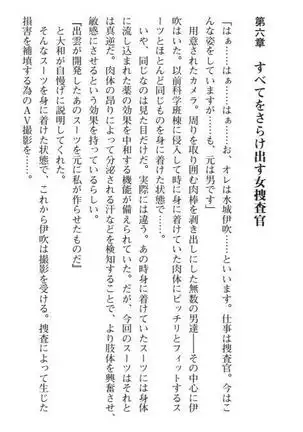 第六章　すべてをさらけ出す女捜査官
「はぁ……はぁ……はぁ……お、オレは水城伊吹……といいます。仕事は捜査官。今はこ
んな姿をしていますが……も、元は男です」
用意されたカメラ。周りを取り囲む肉棒を剥き出しにした無数の男達――その中心に伊
吹はいた。以前科学班棟に侵入して時に身に着けていた肉体にピッチリとフィットするス
ーツとほとんど同じものを身に着けた状態で……。
いや、同じなのは見た目だけだ。実際には違う。あの時身に着けていたスーツには身体
に流し込まれた薬の効果を中和する機能が備えられていた。だが、今回のスーツはそれと
は真逆だ。肉体の昂りによって分泌される汗などを検知することで、より肢体を興奮させ、
敏感にさせるという効果を持っているらしい。
『出雲が開発したあのスーツを元に私が作らせたものだ』
と大和が自慢げに説明してくれた。
そんなスーツを身に着けた状態で、これから伊吹は撮影を受ける。捜査によって生じた
損害を補填する為のＡＶ撮影を……。